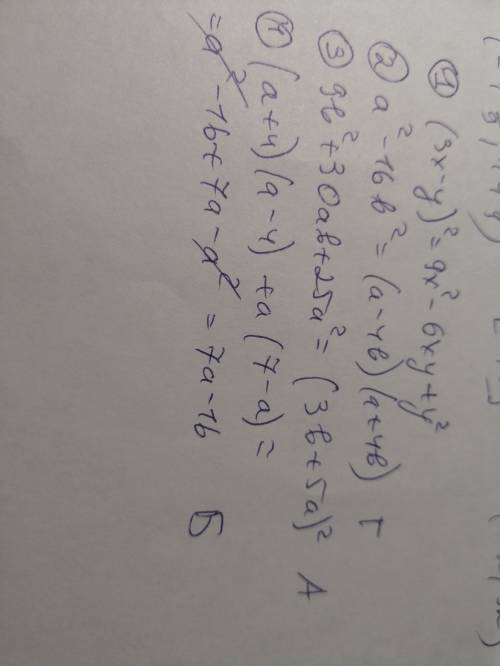 ① (3x-y)² = 9x² - 6xy + y²
② a² - 16b² = (a-4b)(a+4b) Г
③ 9b² + 30ab + 25a² = (3b+5a)² А
④ (a+4)(a-4) + a(7-a) =
= a² - 16 + 7a - a² = 7a - 16 Б